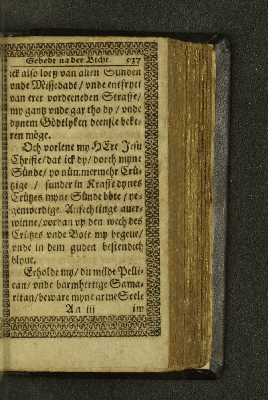 Gebede na der Bicht. 537
ick also loeß van allen Sünden
vnde Missedadt / vnde entfryet
van erer vordeeneden Straffe /
my gantz vnde gar tho dy / vnde
dynem Gödtlyken deenste beke-
ren möge.
Och vorlene my HErr Jesu
Christe / dat ick dy / dorch myne
Sünde / yo nün.mermehr Crü-
tzige / sunder in Krafft dynes
Crützes myne Sünde böte / ye-
genwerdige Anfechtinge auer-
winne / vordan vp den wech des
Crützes vnde Bote my begeue /
vnde in dem guden bestendich
blyue,
Erholde my / du milde Pelli-
can / vnde barmhertige Sama-
ritan / beware myne arme Seele
Aa iij im